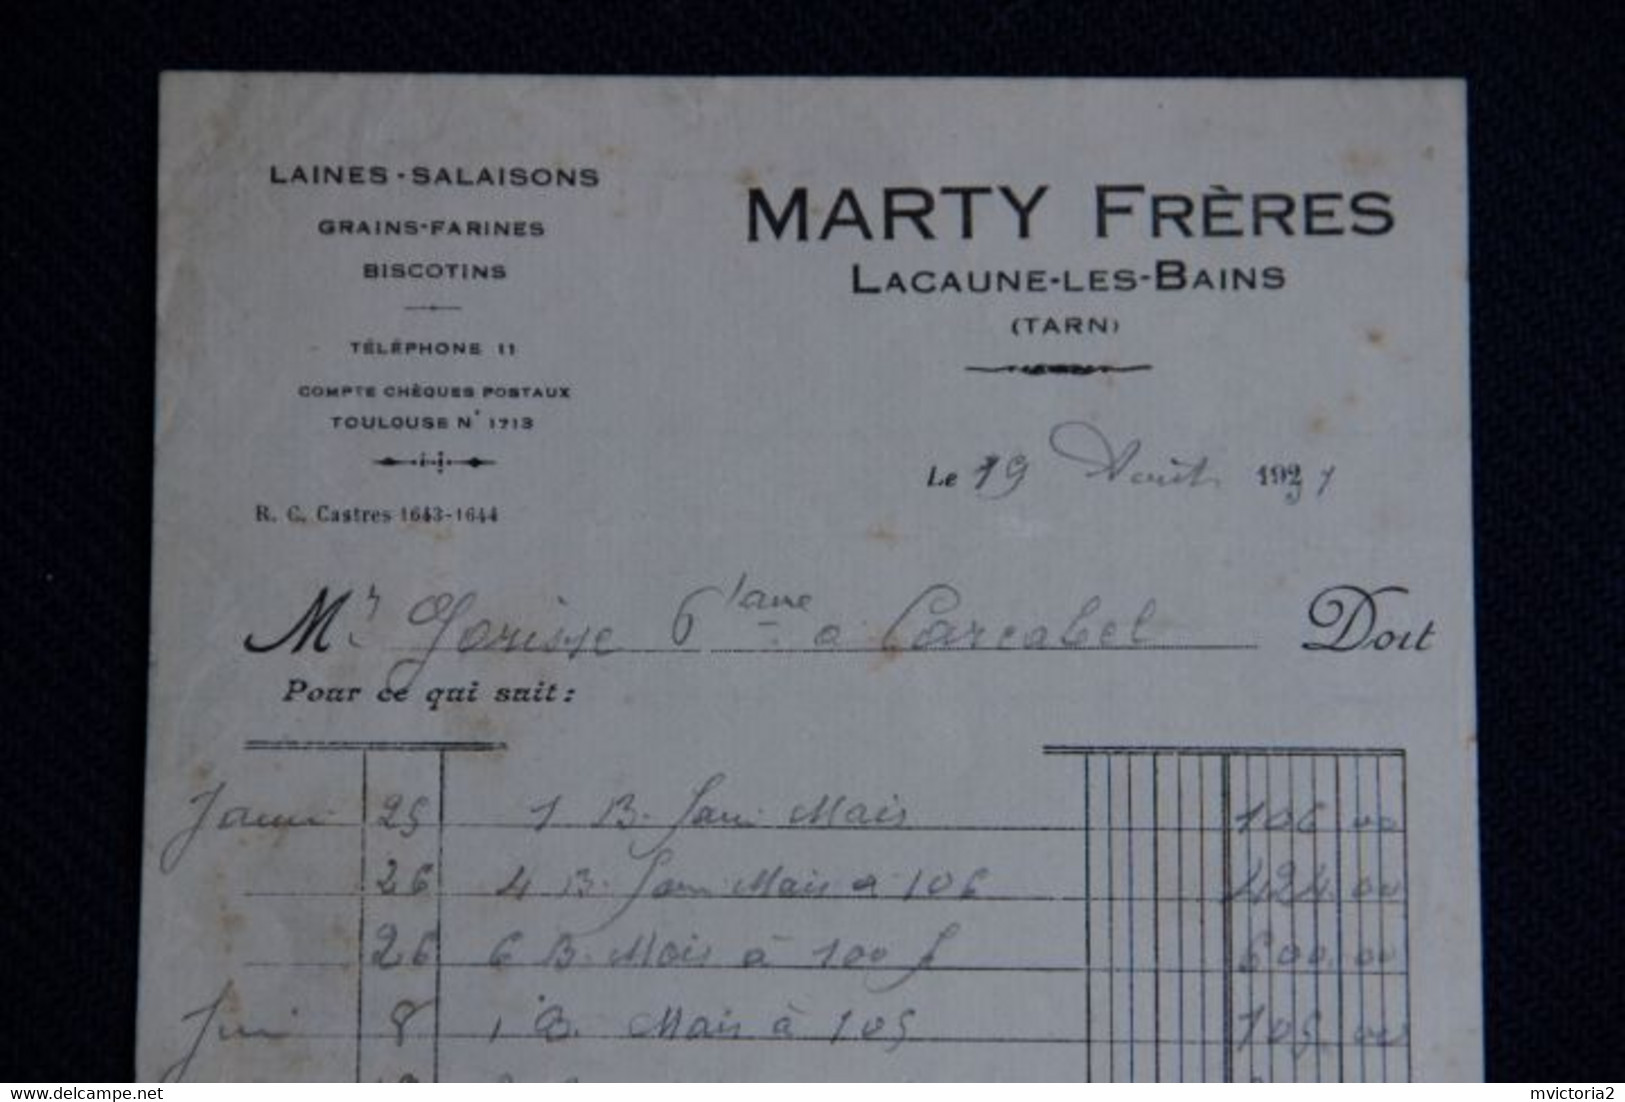 LAINES - SALAISONS
GRAINS-FARINES
BISCOTINS
TÉLÉPHONE 11
COMPTE CHÈQUES POSTAUX
TOULOUSE N° 1713
R. C. Castres 1643-1644
MARTY FRÈRES
LACAUNE-LES-BAINS
(TARN)
Le 19 Août 1931
Mr à Carcabel Doit
Pour ce qui suit :
25 1 B. Mais 106 00
26 4 B. Mais a 106 424.00
26 6 B. Mais à 100 f 600.00
Juin 8 1 B. Mais à 105 105.00
mvictoria2